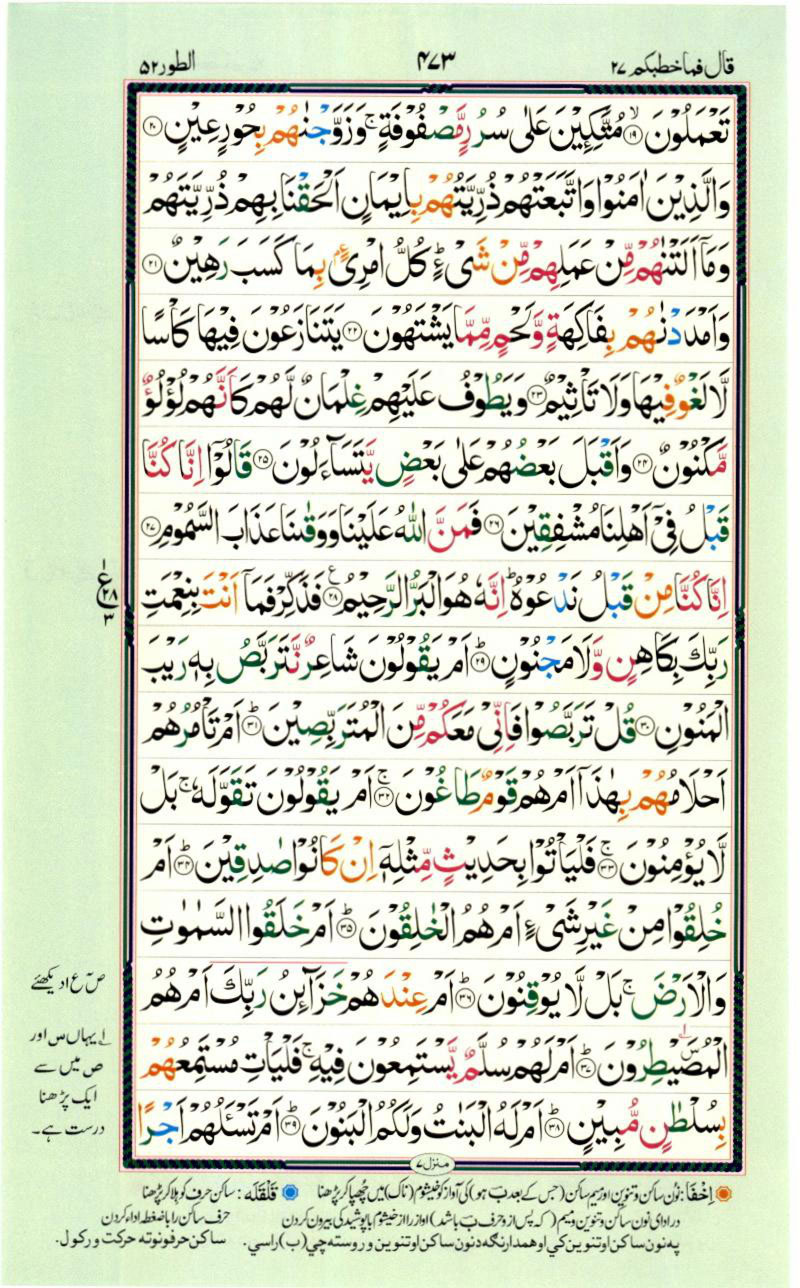 قال فما خطبكم ۲۷
۴۷۳
الطور ۵۲
تَعْمَلُوْنَ ۙ﴿۱۹﴾ مُتَّكِـِٕيْنَ عَلٰى سُرُرٍ مَّصْفُوْفَةٍ ۚ وَزَوَّجْنٰهُمْ بِحُوْرٍ عِيْنٍ ﴿۲۰﴾
وَالَّذِيْنَ اٰمَنُوْا وَاتَّبَعَتْهُمْ ذُرِّيَّتُهُمْ بِاِيْمَانٍ اَلْحَقْنَا بِهِمْ ذُرِّيَّتَهُمْ
وَمَاۤ اَلَتْنٰهُمْ مِّنْ عَمَلِهِمْ مِّنْ شَىْءٍ ؕ كُلُّ امْرِیًٴۢ بِمَا كَسَبَ رَهِيْنٌ ﴿۲۱﴾
وَاَمْدَدْنٰهُمْ بِفَاكِهَةٍ وَّلَحْمٍ مِّمَّا يَشْتَهُوْنَ ﴿۲۲﴾ يَتَنَازَعُوْنَ فِيْهَا كَاْسًا
لَّا لَغْوٌ فِيْهَا وَلَا تَاْثِيْمٌ ﴿۲۳﴾ وَيَطُوْفُ عَلَيْهِمْ غِلْمَانٌ لَّهُمْ كَاَنَّهُمْ لُؤْلُؤٌ
مَّكْنُوْنٌ ﴿۲۴﴾ وَاَقْبَلَ بَعْضُهُمْ عَلٰى بَعْضٍ يَّتَسَآءَلُوْنَ ﴿۲۵﴾ قَالُوْۤا اِنَّا كُنَّا
قَبْلُ فِیْۤ اَهْلِنَا مُشْفِقِيْنَ ﴿۲۶﴾ فَمَنَّ اللّٰهُ عَلَيْنَا وَوَقٰىنَا عَذَابَ السَّمُوْمِ ﴿۲۷﴾
اِنَّا كُنَّا مِنْ قَبْلُ نَدْعُوْهُ ؕ اِنَّهٗ هُوَ الْبَرُّ الرَّحِيْمُ ﴿۲۸﴾ ع فَذَكِّرْ فَمَاۤ اَنْتَ بِنِعْمَتِ
ع ۱ ۲۸ ۳
رَبِّكَ بِكَاهِنٍ وَّلَا مَجْنُوْنٍ ؕ﴿۲۹﴾ اَمْ يَقُوْلُوْنَ شَاعِرٌ نَّتَرَبَّصُ بِهٖ رَيْبَ
الْمَنُوْنِ ﴿۳۰﴾ قُلْ تَرَبَّصُوْا فَاِنِّیْ مَعَكُمْ مِّنَ الْمُتَرَبِّصِيْنَ ؕ﴿۳۱﴾ اَمْ تَاْمُرُهُمْ
اَحْلَامُهُمْ بِهٰذَاۤ اَمْ هُمْ قَوْمٌ طَاغُوْنَ ۚ﴿۳۲﴾ اَمْ يَقُوْلُوْنَ تَقَوَّلَهٗ ۚ بَلْ
لَّا يُؤْمِنُوْنَ ۚ﴿۳۳﴾ فَلْيَاْتُوْا بِحَدِيْثٍ مِّثْلِهٖۤ اِنْ كَانُوْا صٰدِقِيْنَ ؕ﴿۳۴﴾ اَمْ
خُلِقُوْا مِنْ غَيْرِ شَىْءٍ اَمْ هُمُ الْخٰلِقُوْنَ ؕ﴿۳۵﴾ اَمْ خَلَقُوا السَّمٰوٰتِ
وَالْاَرْضَ ۚ بَلْ لَّا يُوْقِنُوْنَ ؕ﴿۳۶﴾ اَمْ عِنْدَهُمْ خَزَآئِنُ رَبِّكَ اَمْ هُمُ
الْمُصَۜيْطِرُوْنَ ؕ﴿۳۷﴾ اَمْ لَهُمْ سُلَّمٌ يَّسْتَمِعُوْنَ فِيْهِ ۚ فَلْيَاْتِ مُسْتَمِعُهُمْ
بِسُلْطٰنٍ مُّبِيْنٍ ؕ﴿۳۸﴾ اَمْ لَهُ الْبَنٰتُ وَلَكُمُ الْبَنُوْنَ ؕ﴿۳۹﴾ اَمْ تَسْـَٔلُهُمْ اَجْرًا
ص ع ا دیکھئے
۱ یہاں س اور
ص میں سے
ایک پڑھنا
درست ہے۔
منزل ۷
اِخْفَا: نون ساکن و تنوین اور میم ساکن (جس کے بعد ب ہو) کی آواز کو خیشوم (ناک) میں چھپا کر پڑھنا
قَلْقَلَه: ساکن حرف کو ہلا کر پڑھنا
در ادای نون ساکن و تنوین و میم (که پس از و حرف ب باشد) آواز را از خیشوم با پوشیدگی بیرون کردن
حرف ساکن را با ضغطه اداء کردن
په نون ساکن او تنوین کی او همدارنگه د نون ساکن او تنوین وروسته چی (ب) راسي.
ساکن حرفونو ته حرکت ورکول.